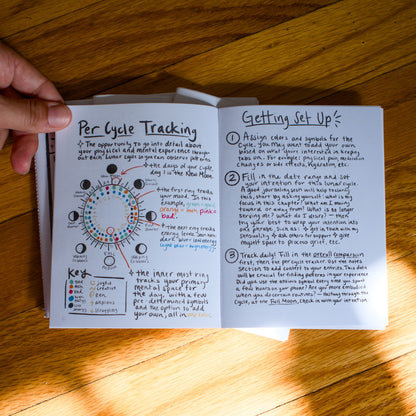 Per Cycle Tracking
✧ The opportunity to go into detail about
your physical and mental experience throughout
each Lunar cycle so you can observe patterns.
✧ the days of your cycle,
day 1 is the New Moon.
✧ the first ring tracks
your mood. In this
example, green = good
orange = meh pink =
bad.
✧ the next ring tracks
energy level.
✧ the inner most ring
tracks your primary
mental space for
the day, with a few
pre-determined symbols
and the option to add
your own, all in one
Key
good
meh
bad
joyful
creative
zen
anxious
struggling
Getting Set Up
① Assign colors and symbols for the
cycle. You may want to add your own
based on what your interested in keeping
tabs on. For example: physical pain, medication
changes or side effects, hydration, etc.
② Fill in the date range and set
your intention for this lunar cycle.
A good journaling sesh will help tracking
this, start by asking yourself: what is my
focus in this chapter? What am I moving
toward or away from? What is no longer
serving me? what do I desire? — then
try your best to wrap your intention into
one phrase. Such as: ✧ get in touch with my
sensuality ✧ ask others for support ✧ give
myself space to process grief, etc.
③ Track daily! Fill in the overall comparison
first, then the per cycle tracker. Use the notes
section to add context to your entries. This data
will be crucial for finding patterns in your experience.
Did you use the anxious symbol every time you spent
a few hours on your phone? Are you more embodied
when you do certain routines? — Halfway through the
cycle, at the Full Moon, check in with your intention